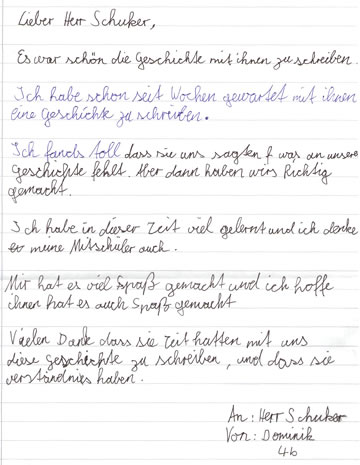 Lieber Herr Schuker,
Es war schön die Geschichte mit ihnen zu schreiben.
Ich habe schon seit Wochen gewartet mit ihnen
eine Geschichte zu schreiben.
Ich fands toll dass sie uns sagten was an unsere
geschichte fehlt. Aber dann haben wirs Richtig
gemacht.
Ich habe in dieser Zeit viel gelernt und ich denke
meine Mitschüler auch.
Mir hat es viel Spaß gemacht und ich hoffe
ihnen hat es auch Spaß gemacht
Vielen Dank dass sie Zeit hatten mit uns
diese Geschichte zu schreiben, und dass sie
verständnies haben.
An: Herr Schuker
Von: Dominik
4b